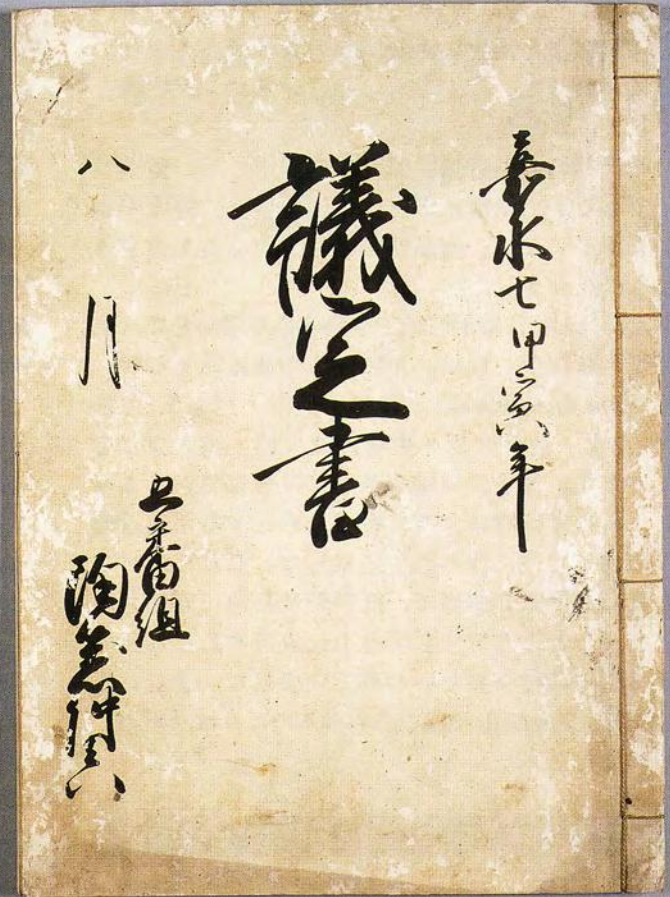 嘉永七甲寅年
議定書
八月
五番組
陶器仲間